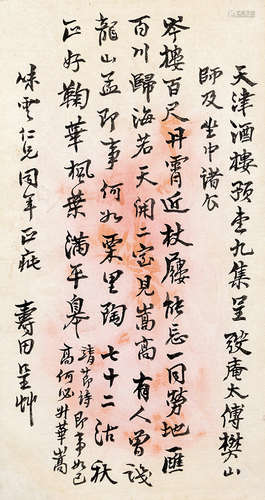 天津酒樓預重九集呈 弢庵太傅樊山
師及坐中諸公
岑樓百尺丹霄近杖屨能忘一同勞地匯
百川歸海若天開二室見嵩高有人曾議
龍山孟即事何如栗里陶七十二沽秋
正好鞠華楓葉滿平皋
靖節詩即事如已
高何必升華嵩
味雲仁兄同年正疵 壽田呈艸